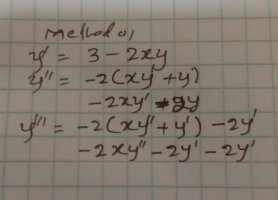 method 01
y' = 3 - 2xy
y'' = -2(xy' + y)
-2xy' - 2y
y''' = -2(xy'' + y') - 2y'
-2xy'' - 2y' - 2y'